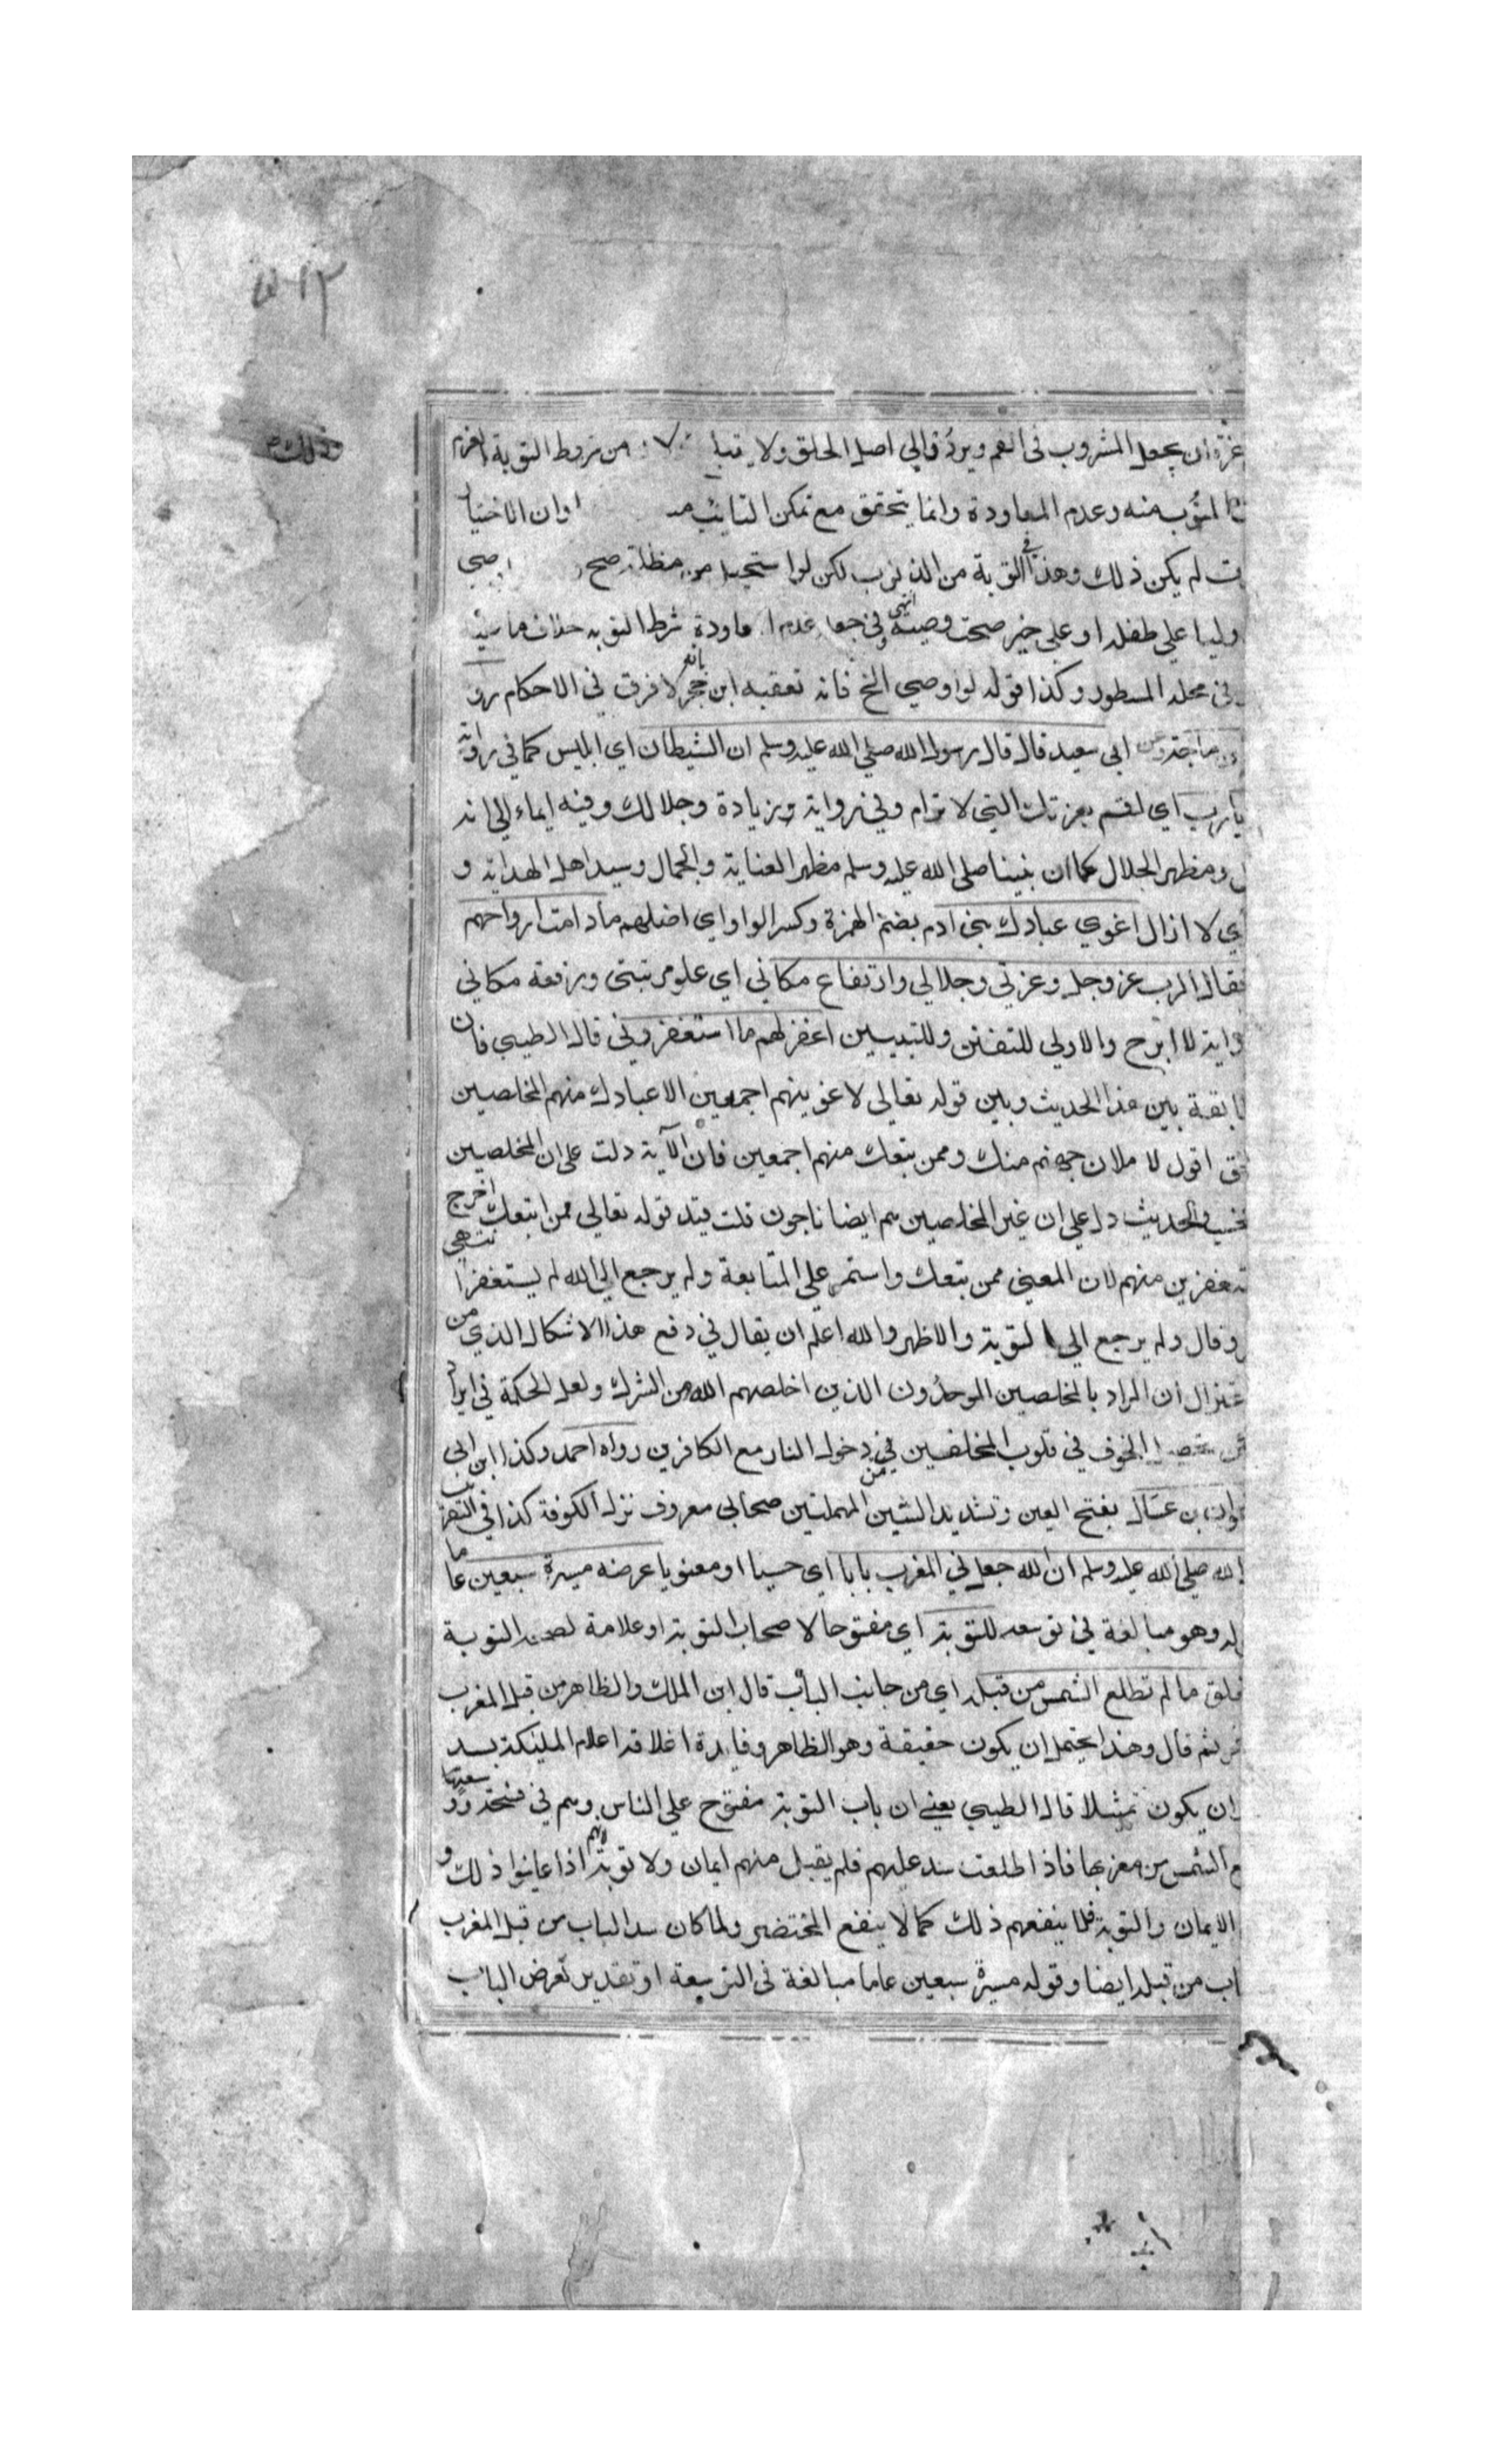 ٥١٢
وذلك
غرة ان يجعل المشروب في الفم ويردد الي اصل الحلق ولا من شروط التوبة العزم
المتوب منه وعدم المعاودة وانما يتحقق مع تمكن التائب اوان الاختيار
لم يكن ذلك وهذا في التوبة من الذنوب لكن لو استحل من مظلمة صح
وليا علي طفله او علي خير صحت وصيته انتهي وفي جعل عدم شرط التوبة خلاف ما
في محله المسطور وكذا قوله لو اوصي الخ فانه تعقبه ابن حجر بانه لا فرق في الاحكام
ماجة وعن ابي سعيد قال قال رسول الله صلي الله عليه وسلم ان الشيطان اي ابليس كما في رواية
يا رب اي اقسم بعزتك التي لا ترام وفي رواية وزيادة وجلالك وفيه ايماء الي انه
ومظهر الجلال كما ان نبينا صلي الله عليه وسلم مظهر العناية والجمال وسيد اهل الهداية و
اي لا ازال اغوي عبادك بني ادم بضم الهمزة وكسر الواو اي اضلهم ما دامت ارواحهم
فقال الرب عز وجل وعزتي وجلالي وارتفاع مكاني اي علو مرتبتي ورفعة مكاني
لا ابرح والاولي للتفنن اغفر لهم ما استغفروني قال الطيبي فان
بين هذا الحديث وبين قوله تعالي لاغوينهم اجمعين الا عبادك منهم المخلصين
اقول لاملان جهنم منك وممن تبعك منهم اجمعين فان الآية دلت علي ان المخلصين
والحديث دل علي ان غير المخلصين هم ايضا ناجون قلت قيد قوله تعالي ممن اتبعك اخرج
منهم لان المعني ممن تبعك واستمر علي المتابعة ولم يرجع الي الله لم يستغفر انتهي
وقال ولم يرجع الي التوبة والاظهر والله اعلم ان يقال في دفع هذا الاشكال الذي من
ان المراد بالمخلصين الموحدون الذين اخلصهم الله من الشرك ولعل الحكمة في ايراد
الخوف في قلوب المخلصين من دخول النار مع الكافرين رواه احمد وكذا ابن ابي
بن عسال بفتح العين وتشديد السين المهملتين صحابي معروف نزل الكوفة كذا في التقريب
الله صلي الله عليه وسلم ان الله جعل في المغرب بابا اي حسيا او معنويا عرضه مسيرة سبعين عاما
وهو مبالغة في توسعه للتوبة اي مفتوحا لاصحاب التوبة او علامة لصحة التوبة
ما لم تطلع الشمس من قبله اي من جانب الباب قال ابن الملك والظاهر من قبل المغرب
ثم قال وهذا يحتمل ان يكون حقيقة وهو الظاهر وفايدة اغلاقه اعلام المليكة بسد
ان يكون تمثيلا قال الطيبي يعني ان باب التوبة مفتوح علي الناس وهم في فسحة وسعة
الشمس من مغربها فاذا اطلعت سد عليهم فلم يقبل منهم ايمان ولا توبة لانهم اذا عاينوا ذلك و
الايمان والتوبة فلا ينفعهم ذلك كما لا ينفع المحتضر ولما كان سد الباب من قبل المغرب
من قبله ايضا وقوله مسيرة سبعين عاما مبالغة في التوسعة او تقدير لعرض الباب